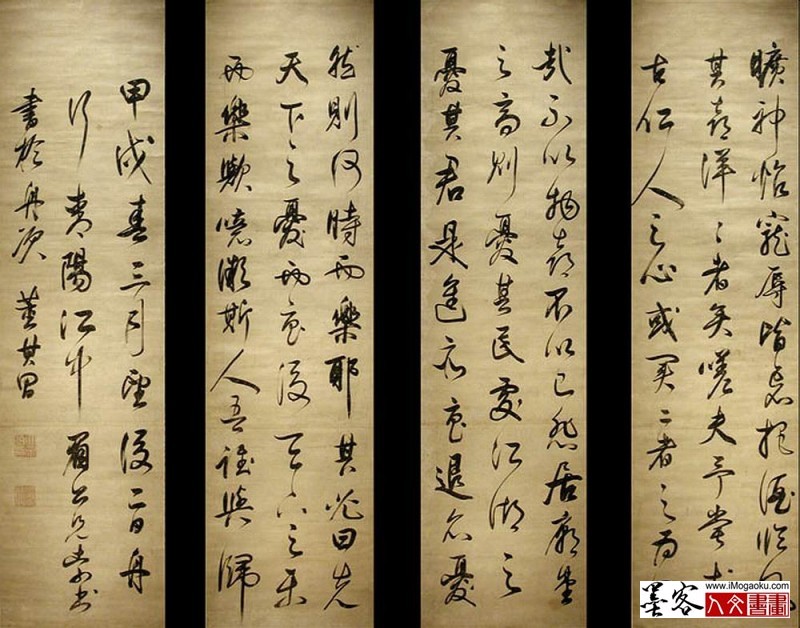 曠神怡寵辱皆忘把酒臨風
其喜洋々者矣嗟夫予嘗求
古仁人之心或異二者之為
哉不以物喜不以己悲居廟堂
之高則憂其民處江湖之
憂其君是進亦憂退亦憂
然則何時而樂耶其必曰先
天下之憂而憂後天下之樂
而樂歟噫微斯人吾誰與歸
甲戌春三月望後二日舟
行陽江中眉公兄索書
書於舟次 董其昌
www.iMogaoku.com
墨客
人文書畫